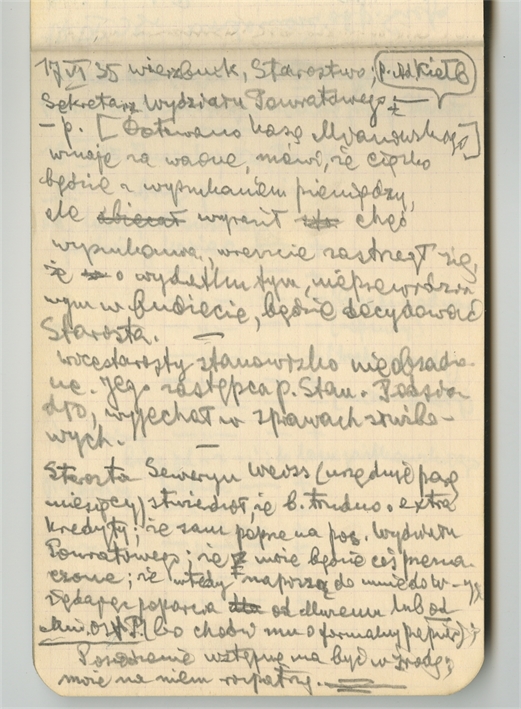 17 VI 35 Wierzbnik, Starostwo, p. Ad. Kiełb
Sekretarz Wydziału Powiatowego,
– p. [Ratowano Kasę Mianowskiego]
uznaje za ważne, mówi, że ciężko
będzie z wyszukaniem pieniędzy,
ale obiecał wyraził chęć
wyszukania, wreszcie zastrzegł się,
że o wydatku tym, nieprzewidzia
nym w budżecie, będzie decydować
Starosta. —
Wicestarosty stanowisko nieobsadzo-
ne. Jego zastępca p. Stan.
wyjechał w sprawach służbo-
wych. —
Starosta Seweryn Weiss (urzęduje parę
miesięcy) stwierdził, że b. trudno o extra
kredyty; że sam poprze na pos. Wydziału
Powiatowego; że może będzie coś przezna-
czone; że wtedy napiszą do mnie do W-wy
żądając poparcia od lub od
(bo chodzi mu o formalny papier);
Posiedzenie wstępne ma być w środę;
może na niem rozpatrzą. —